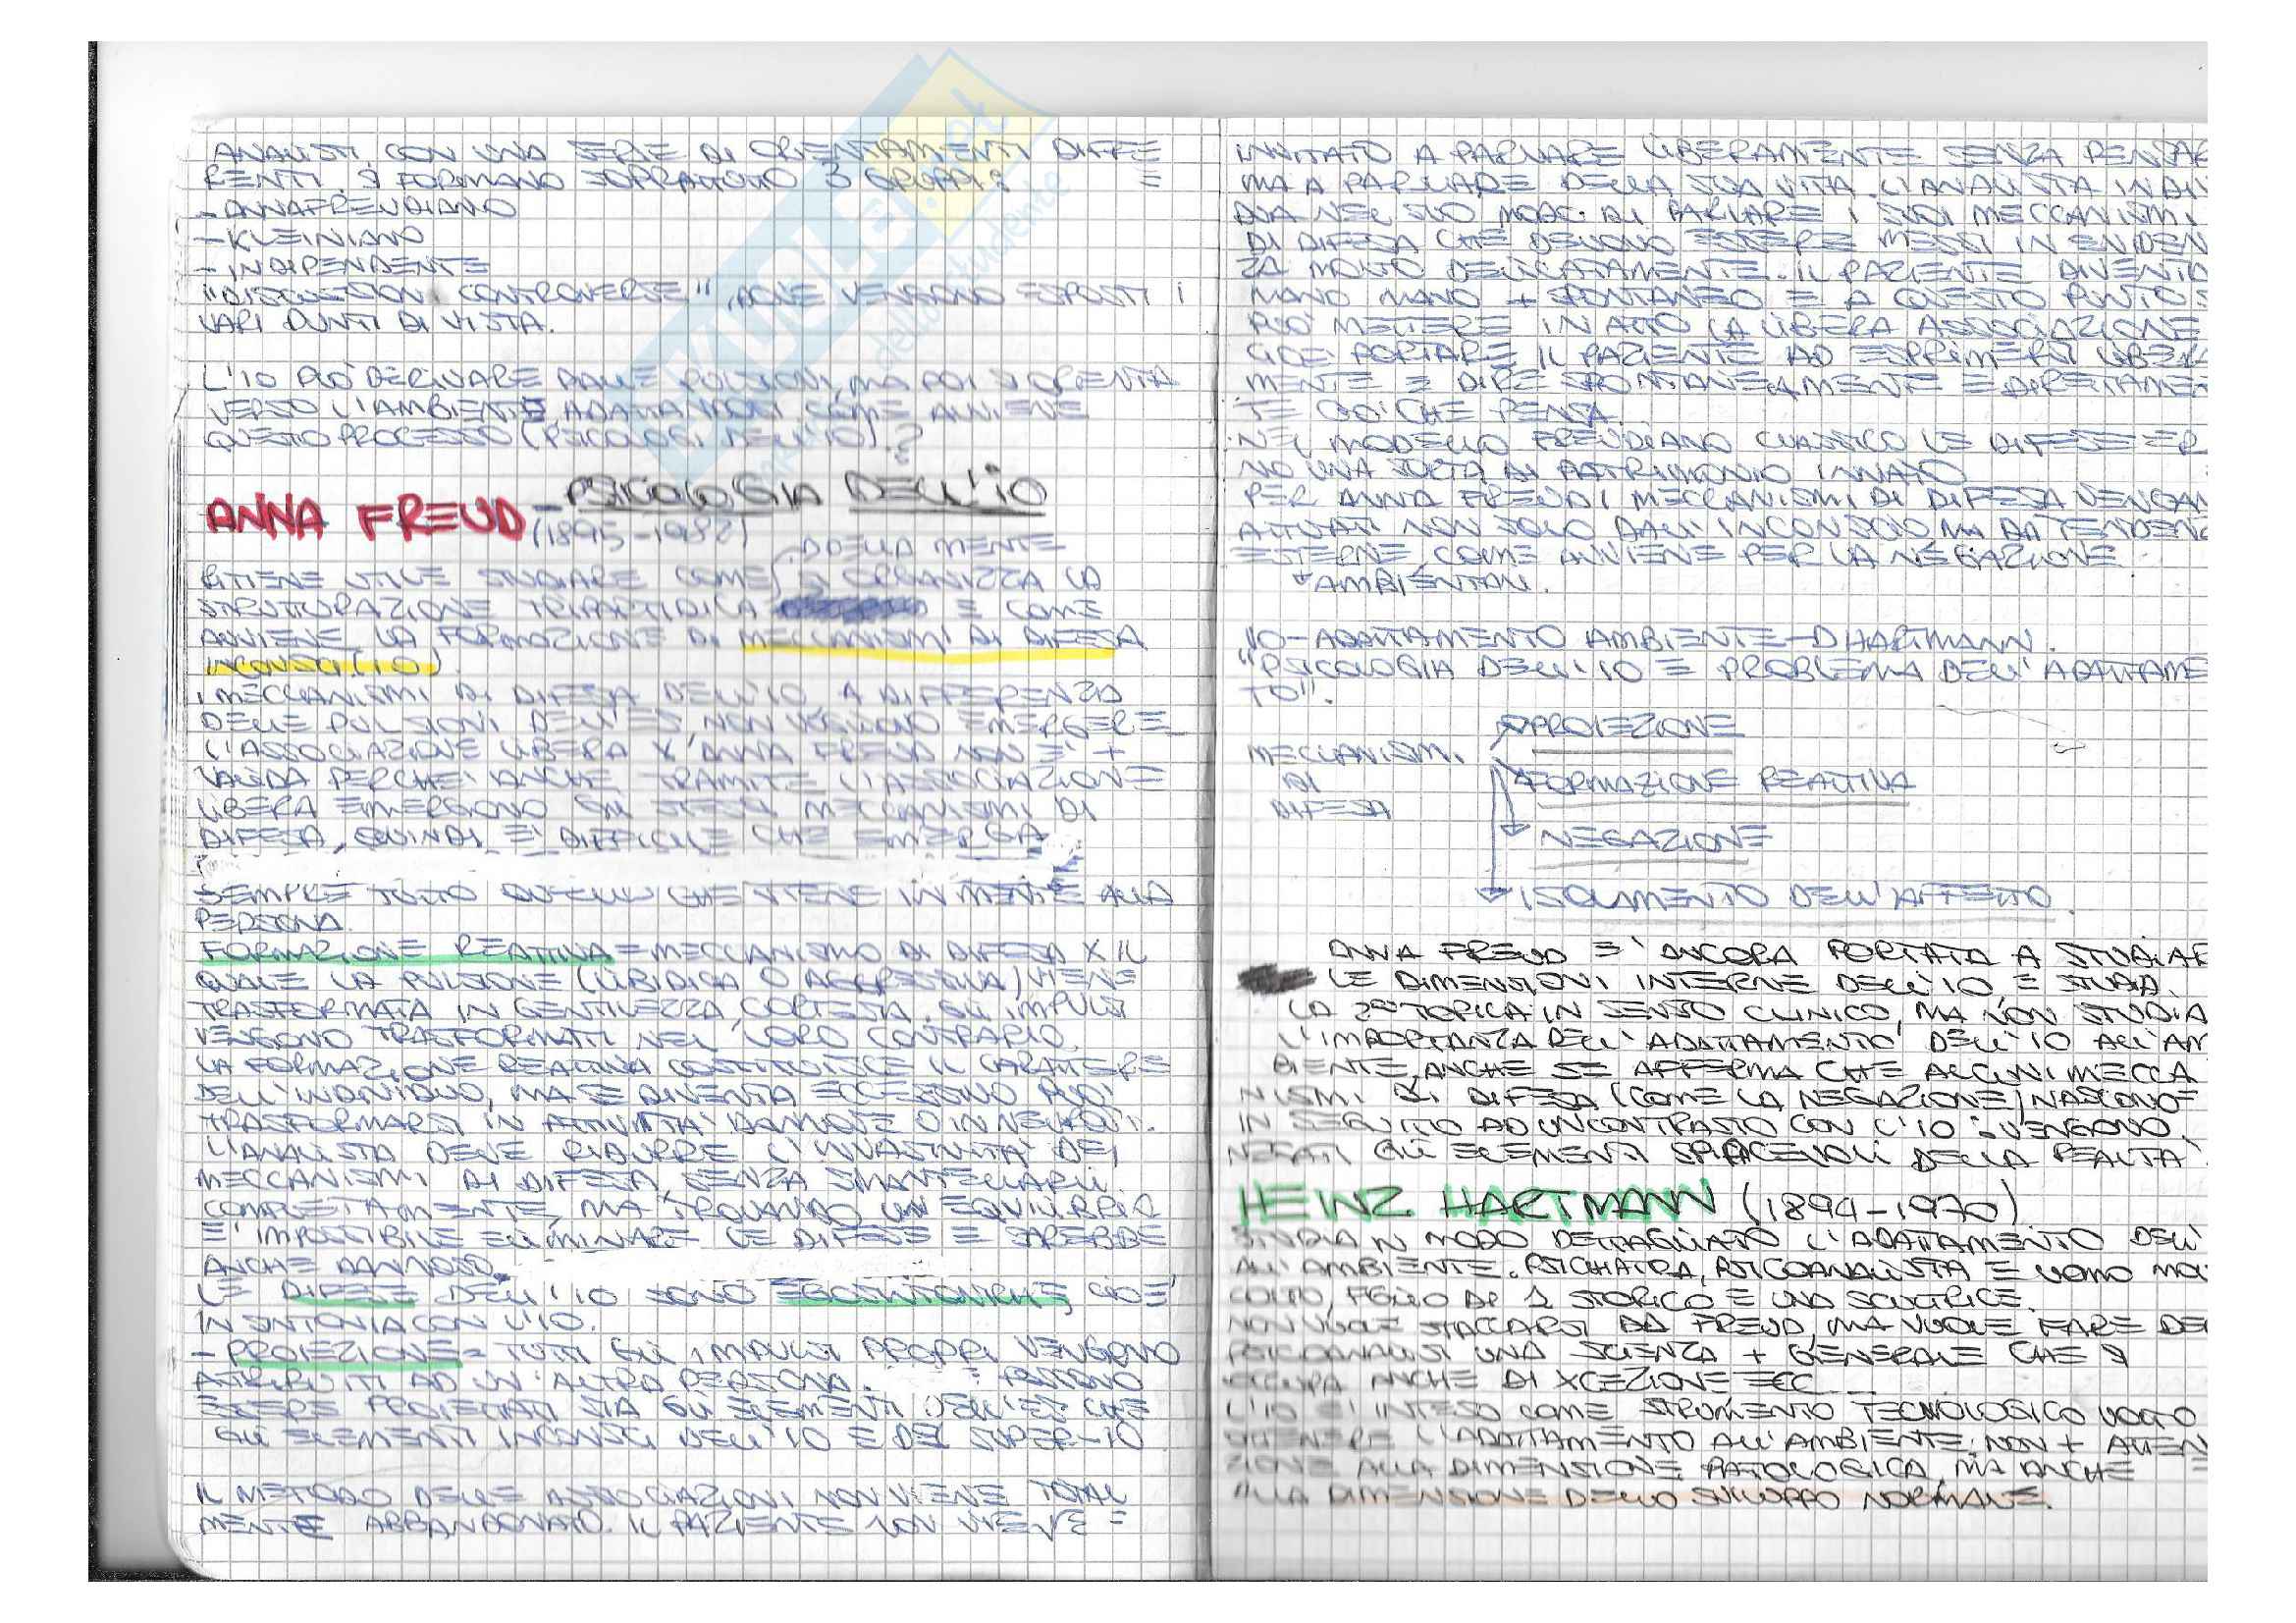 ANALISTI CON UNA SERIE DI ORIENTAMENTI DIFFE
RENTI. SI FORMANO SOPRATTUTTO 3 GRUPPI:
- ANNAFREUDIANO
- KLEINIANO
- INDIPENDENTE
"DISCUSSIONI CONTROVERSE", DOVE VENGONO ESPOSTI I
VARI PUNTI DI VISTA.
L'IO PUÒ DERIVARE DALLE PULSIONI, MA POI SI ORIENTA
VERSO L'AMBIENTE ADATTANDOSI COME AVVIENE
QUESTO PROCESSO (PSICOLOGI DELL'IO)?
ANNA FREUD - PSICOLOGIA DELL'IO
(1895-1982)
DELLA MENTE
RITIENE UTILE STUDIARE COME SI ORGANIZZA LA
STRUTTURAZIONE TRIPARTITICA E COME
AVVIENE LA FORMAZIONE DI MECCANISMI DI DIFESA
INCONSCI (IO).
I MECCANISMI DI DIFESA DELL'IO A DIFFERENZA
DELLE PULSIONI DELL'ES, NON VOGLIONO EMERGERE
L'ASSOCIAZIONE LIBERA X ANNA FREUD NON E' +
VALIDA PERCHE' ANCHE TRAMITE L'ASSOCIAZIONE
LIBERA EMERGONO GLI STESSI MECCANISMI DI
DIFESA, QUINDI E' DIFFICILE CHE EMERGA
SEMPRE TUTTO QUELLO CHE VIENE IN MENTE ALLA
PERSONA.
FORMAZIONE REATTIVA = MECCANISMO DI DIFESA X IL
QUALE LA PULSIONE (LIBIDICA O AGGRESSIVA) VIENE
TRASFORMATA IN GENTILEZZA, CORTESIA. GLI IMPULSI
VENGONO TRASFORMATI NEL LORO CONTRARIO.
LA FORMAZIONE REATTIVA COSTITUISCE IL CARATTERE
DELL'INDIVIDUO, MA SE DIVENTA ECCESSIVO PUOI
TRASFORMARSI IN ATTIVITA' DANNOSE O IN NEVROSI.
L'ANALISTA DEVE RIDURRE L'INVASIVITA' DEI
MECCANISMI DI DIFESA, SENZA SMANTELLARLI
COMPLETAMENTE, MA TROVANDO UN EQUILIBRIO
E' IMPOSSIBILE ELIMINARE LE DIFESE E SAREBBE
ANCHE DANNOSO.
LE DIFESE DELL'IO SONO EGOSINTONICHE, CIOE'
IN SINTONIA CON L'IO.
- PROIEZIONE = TUTTI GLI IMPULSI PROPRI VENGONO
ATTRIBUITI AD UN'ALTRA PERSONA. POSSONO
ESSERE PROIETTATI SIA GLI ELEMENTI DELL'ES CHE
GLI ELEMENTI INCONSCI DELL'IO E DEL SUPER-IO
IL METODO DELLE ASSOCIAZIONI NON VIENE TOTAL
MENTE ABBANDONATO. IL PAZIENTE NON VIENE
INVITATO A PARLARE LIBERAMENTE SENZA PENSAR
MA A PARLARE DELLA SUA VITA. L'ANALISTA INDIVI
DUA NEL SUO MODO DI PARLARE I SUOI MECCANISMI
DI DIFESA CHE DEVONO ESSERE MESSI IN EVIDEN
ZA MOLTO DELICATAMENTE. IL PAZIENTE DIVENTA
MANO MANO + SPONTANEO E A QUESTO PUNTO S
PUO' METTERE IN ATTO LA LIBERA ASSOCIAZIONE
CIOE' PORTARE IL PAZIENTE AD ESPRIMERSI LIBERA
MENTE E DIRE SPONTANEAMENTE E DIRETTAMEN
TE CIO' CHE PENSA.
NEL MODELLO FREUDIANO CLASSICO LE DIFESE ER
NO UNA SORTA DI PATRIMONIO INNATO
PER ANNA FREUD I MECCANISMI DI DIFESA VENGAN
ATTIVATI NON SOLO DALL'INCONSCIO, MA DA TENDENZ
ESTERNE, COME AVVIENE PER LA NEGAZIONE
AMBIENTALI.
IO-ADATTAMENTO AMBIENTE → HARTMANN.
"PSICOLOGIA DELL'IO E PROBLEMA DELL'ADATTAME
TO".
PROIEZIONE
MECCANISMI
FORMAZIONE REATTIVA
DI
DIFESA
NEGAZIONE
ISOLAMENTO DELL'AFFETTO.
ANNA FREUD E' ANCORA PORTATA A STUDIAR
LE DIMENSIONI INTERNE DELL'IO, E STUDIA
LA 2ª TOPICA IN SENSO CLINICO, MA NON STUDIA
L'IMPORTANZA DELL'ADATTAMENTO DELL'IO ALL'AM
BIENTE, ANCHE SE AFFERMA CHE ALCUNI MECCA
NISMI DI DIFESA (COME LA NEGAZIONE) NASCONO
IN SEGUITO AD UN CONTRASTO CON L'IO: VENGONO
NEGATI GLI ELEMENTI SPIACEVOLI DELLA REALTA'.
HEINZ HARTMANN (1894-1970)
STUDIA IN MODO DETTAGLIATO L'ADATTAMENTO DELL'
ALL'AMBIENTE. PSICHIATRA, PSICOANALISTA E UOMO MOL
COLTO, FIGLIO DI 1 STORICO E UNA SCULTRICE.
NON VUOLE STACCARSI DA FREUD, MA VUOLE FARE DE
PSICOANALISI UNA SCIENZA + GENERALE CHE SI
OCCUPA ANCHE DI XCEZIONE ECC...
L'IO E' INTESO COME STRUMENTO TECNOLOGICO VOLTO
OTTENERE L'ADATTAMENTO ALL'AMBIENTE; NON + ATTEN
ZIONE ALLA DIMENSIONE PATOLOGICA, MA ANCHE
ALLA DIMENSIONE DELLO SVILUPPO NORMALE.